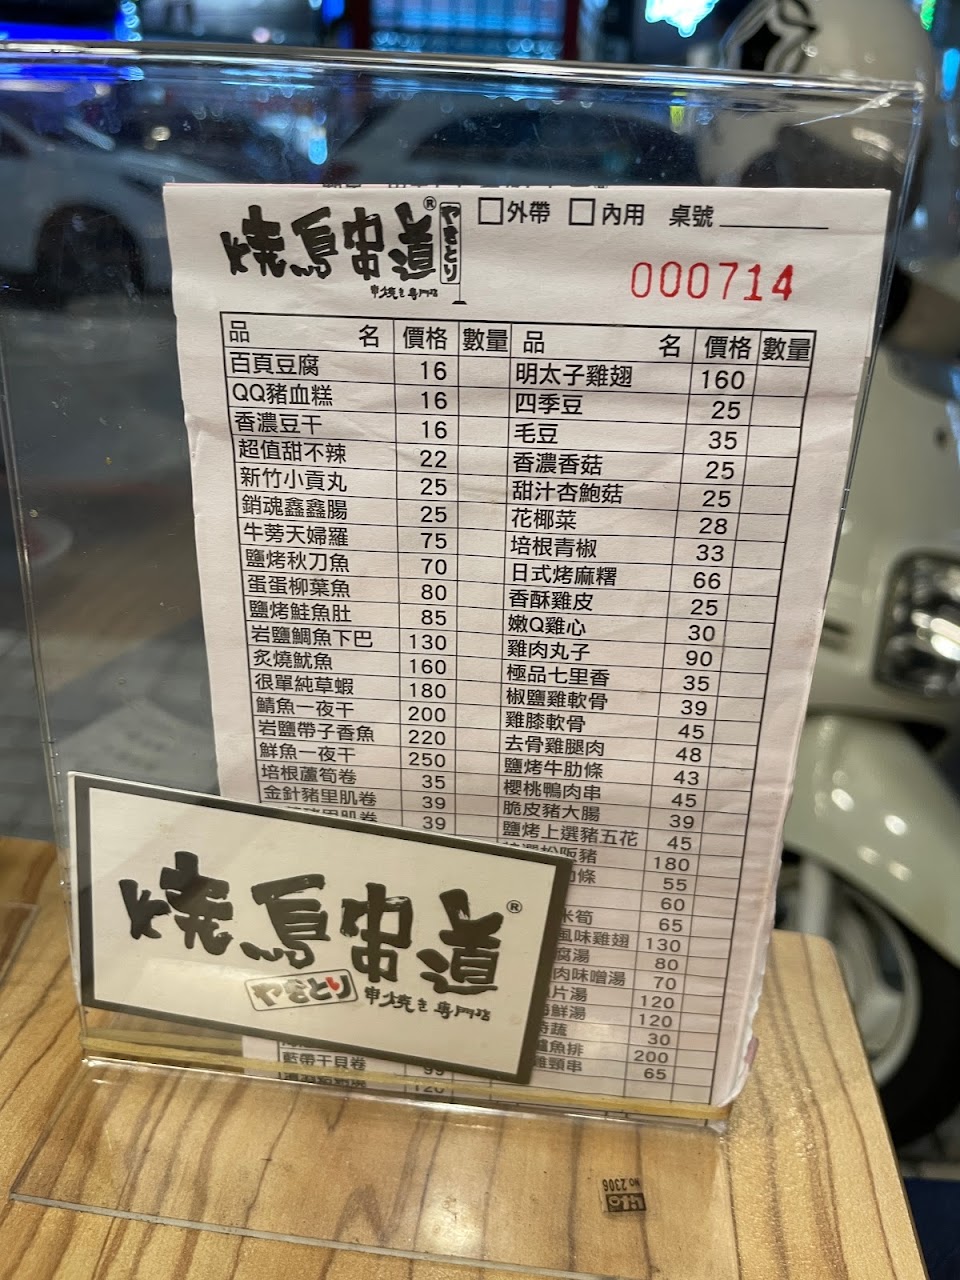 燒鳥串道® やきとり
串焼き専門店
□外帶 □內用 桌號
000714
品名 價格 數量 品名 價格 數量
百頁豆腐 16 明太子雞翅 160
QQ豬血糕 16 四季豆 25
香濃豆干 16 毛豆 35
超值甜不辣 22 香濃香菇 25
新竹小貢丸 25 甜汁杏鮑菇 25
銷魂鑫鑫腸 25 花椰菜 28
牛蒡天婦羅 75 培根青椒 33
鹽烤秋刀魚 70 日式烤麻糬 66
蛋蛋柳葉魚 80 香酥雞皮 25
鹽烤鮭魚肚 85 嫩Q雞心 30
岩鹽鯛魚下巴 130 雞肉丸子 90
炙燒魷魚 160 極品七里香 35
很單純草蝦 180 椒鹽雞軟骨 39
鯖魚一夜干 200 雞膝軟骨 45
岩鹽帶子香魚 220 去骨雞腿肉 48
鮮魚一夜干 250 鹽烤牛肋條 43
培根蘆筍卷 35 櫻桃鴨肉串 45
金針豬里肌卷 39 脆皮豬大腸 39
豬里肌卷 39 鹽烤上選豬五花 45
松阪豬 180
條 55
60
米筍 65
風味雞翅 130
腐湯 80
肉味噌湯 70
片湯 120
鮮湯 120
時蔬 30
魚排 200
藍帶干貝卷 99 雞頸串 65
120
燒鳥串道®
やきとり 串焼き専門店
No.2306